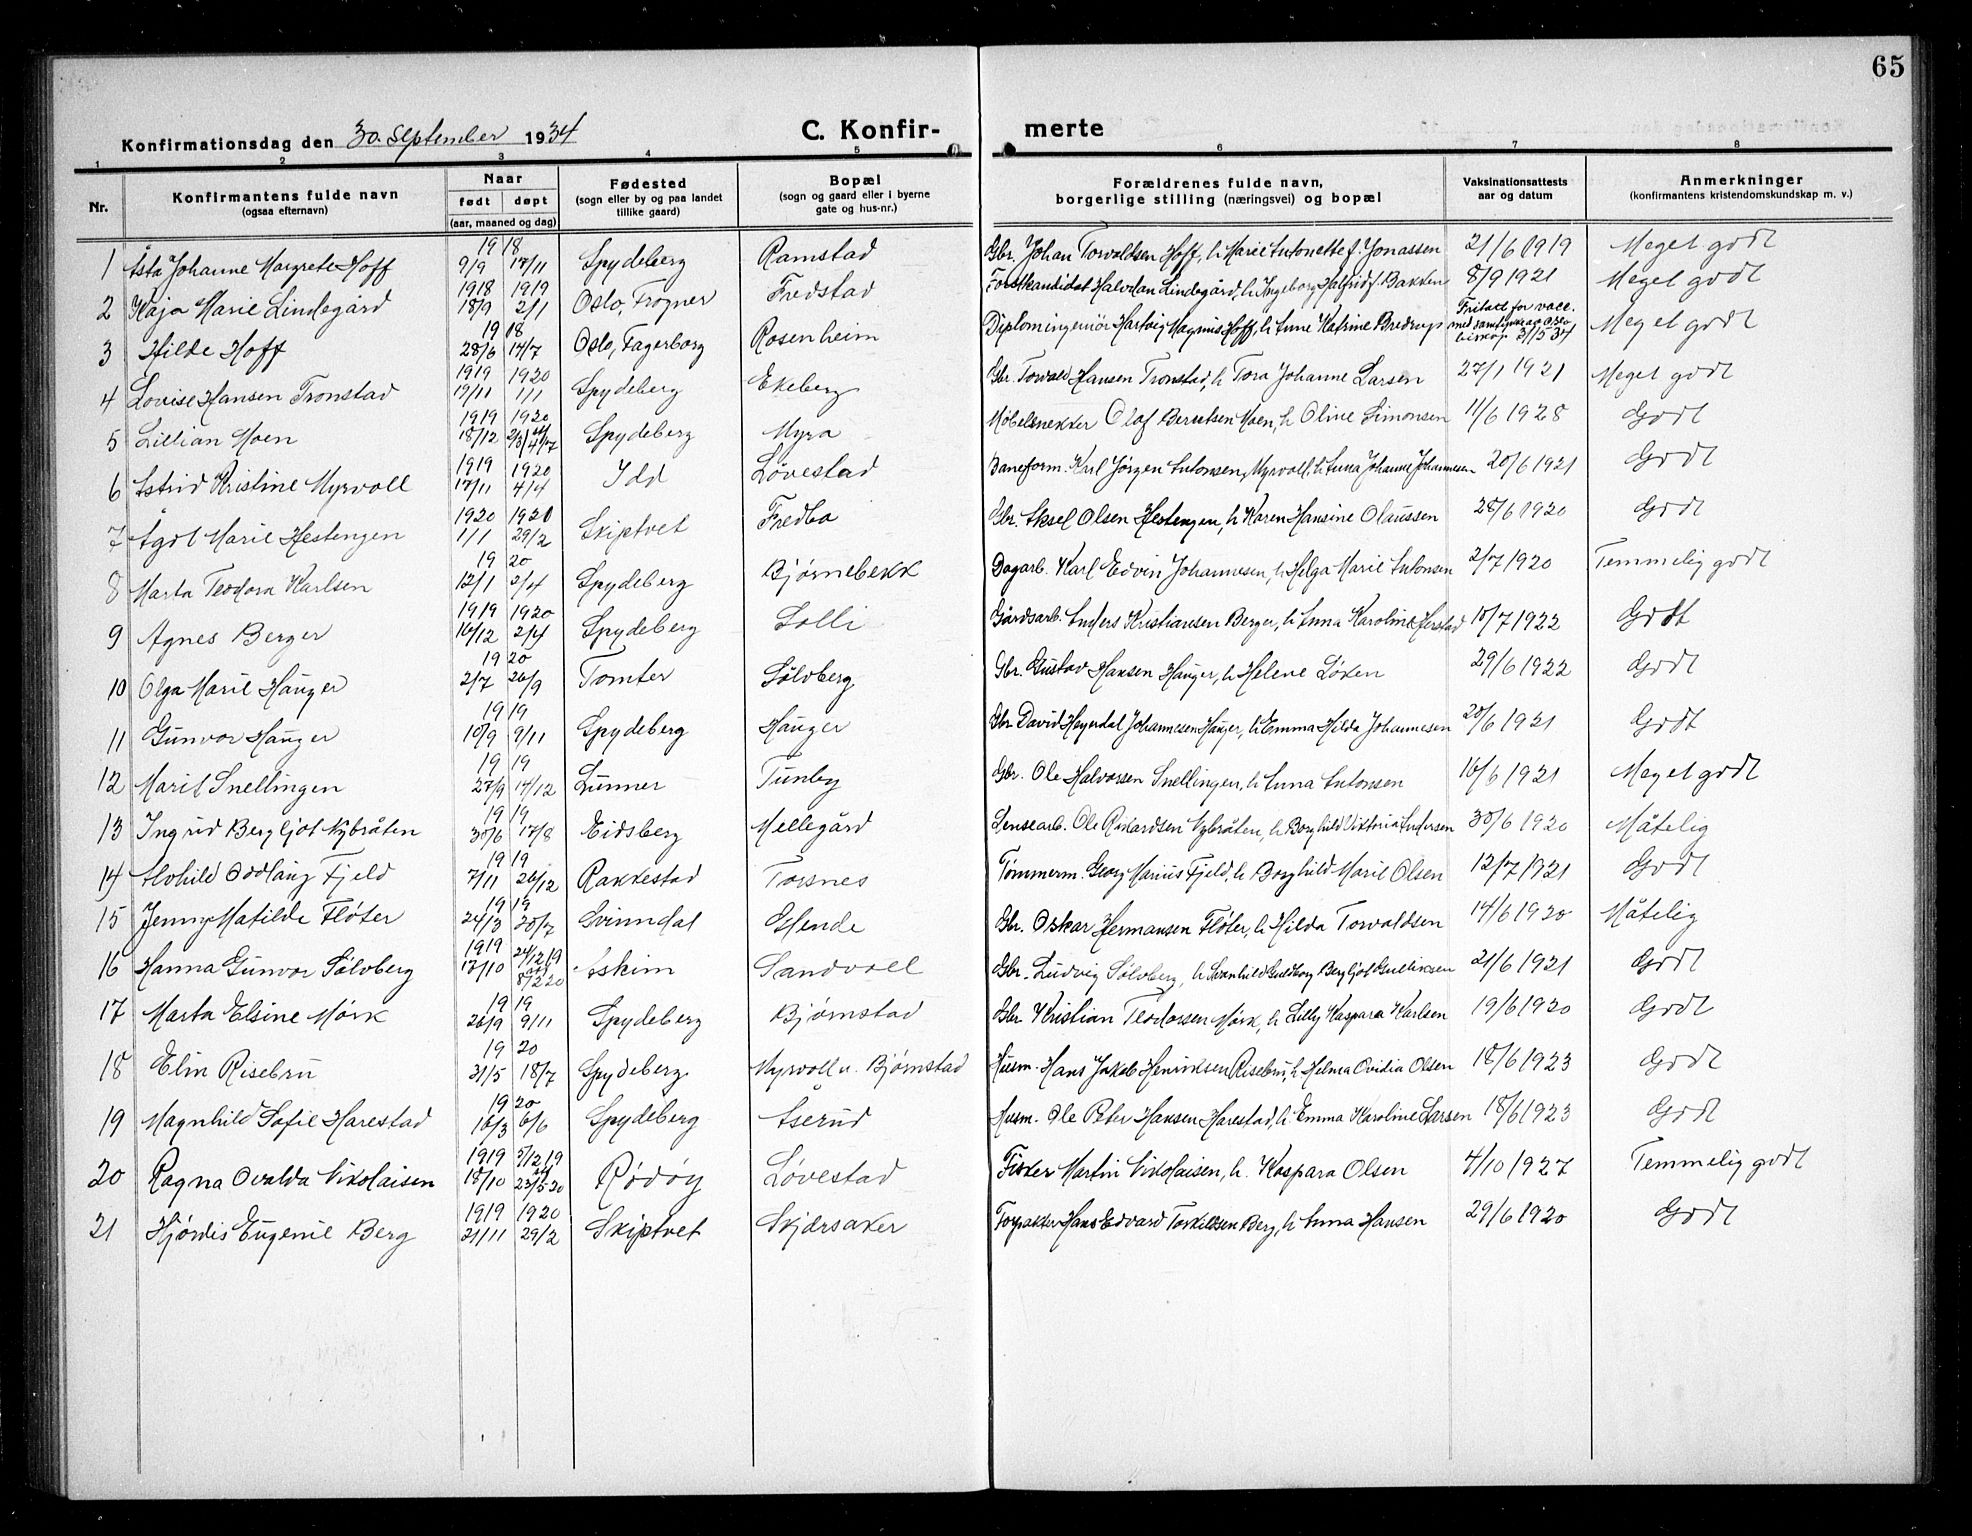 65
Konfirmationsdag den 30. September 1934 C. Konfir- merte
1 2 3 4 5 6 7 8
Nr. Konfirmantens fulde navn (ogsaa efternavn) Naar født døpt (aar, maaned og dag) Fødested (sogn eller by og paa landet tillike gaard) Bopæl (sogn og gaard eller i byerne gate og hus-nr.) Forældrenes fulde navn, borgerlige stilling (næringsvei) og bopæl Vaksinationsattests aar og datum Anmerkninger (konfirmantens kristendomskundskap m. v.)
1 Asta Johanne Margrete Hoff 1918 9/9 17/11 Spydeberg Ramstad Gbr. Johan Torvaldsen Hoff, h Marie Antonette f. Jonassen 21/6 1919 Meget godt
2 Kaja Marie Lindegård 1918 18/9 1919 2/1 Oslo, Frogner Fredstad Forstkandidat Halvdan Lindegård, h Ingeborg Halfrid f. Bakken 8/9 1921 Meget godt
3 Hilde Hoff 1918 28/6 14/7 Oslo, Fagerborg Rosenheim Diplomingeniör Hartvig Magnus Hoff, h Anne Katrine Bredrup Fritatt for vacc. med samtykke av Oslo biskop Meget godt
4 Lovise Hansen Tronstad 1919 17/11 1920 1/1 Spydeberg Ekeberg Gbr. Torvald Hansen Tronstad, h Tora Johanne Larsen 27/1 1921 Meget godt
5 Lillian Moen 1919 18/12 1920 Spydeberg Myra Møbelsnekker Olaf Berntsen Moen, h Oline Simonsen 11/6 1928 Godt
6 Astrid Kristine Myrvoll 1919 17/11 1920 4/4 Idd Løvestad Baneform. Karl Jörgen Antonsen Myrvoll, h Anna Johanne Johannesen 20/6 1921 Godt
7 Ågot Marie Hestengen 1920 1/1 1920 29/2 Skiptvet Fredbo Gbr. Aksel Olsen Hestengen, h Karen Hansine Olaussen 28/6 1920 Godt
8 Marta Teodora Karlsen 1920 12/1 2/4 Spydeberg Bjørnebekk Dagarb. Karl Edvin Johannesen, h Helga Marie Antonsen 2/7 1920 Temmelig godt
9 Agnes Berger 1919 16/12 1920 2/4 Spydeberg Solli Gårdsarb. Anders Kristiansen Berger, h Anna Karoline Herstad 10/7 1922 Godt
10 Olga Marie Hauger 1920 2/7 26/9 Tomter Sølvberg Gbr. Gustav Hansen Hauger, h Helene Löken 29/6 1922 Godt
11 Gunvor Hauger 1919 10/9 9/11 Spydeberg Hauger Gbr David Heyerdal Johannesen Hauger, h Emma Hilda Johannesen 20/6 1921 Godt
12 Marit Snellingen 1919 27/9 14/12 Lunner Tunby Gbr. Ole Halvorsen Snellingen, h Anna Antonsen 16/6 1921 Meget godt
13 Ingrid Bergljot Nybråten 1919 30/6 17/8 Eidsberg Mellegård Lensearb. Ole Rikardsen Nybråten, h Borghild Viktoria Andersen 30/6 1920 Måtelig
14 Alvhild Oddlaug Fjeld 1919 7/11 26/12 Rakkestad Torsnes Tømmerm. Georg Marius Fjeld, h Borghild Marie Olsen 12/7 1921 Godt
15 Jenny Matilde Fløter 1919 24/3 20/7 Svinndal Mende Gbr. Oskar Hermansen Fløter, h Hilda Torvaldsen 14/6 1920 Måtelig
16 Hanna Gunvor Sølvberg 1919 17/10 24/12 19 8/2 20 Askim Sandvoll Gbr. Ludvig Sølvberg, h Svanhild Guldborg Bergljot Gulliksen 21/6 1921 Godt
17 Marta Elsine Mørk 1919 26/9 9/11 Spydeberg Bjørnstad Gbr Kristian Teodorsen Mørk, h Lilly Kaspara Karlsen 19/6 1920 Godt
18 Elin Risebru 1920 31/5 18/7 Spydeberg Myrvoll u. Bjørnstad Husm. Hans Jakob Henriksen Risebru, h Helma Ovidia Olsen 18/6 1923 Godt
19 Magnhild Sofie Harestad 1920 16/3 6/6 Spydeberg Åserud Husm. Ole Peter Hansen Harestad, h. Emma Karoline Larsen 18/6 1923 Godt
20 Ragna Ovalda Nikolaisen 1919 18/10 5/12 19 23/5 20 Rødøy Løvestad Fisker Martin Nikolaisen, h. Kaspara Olsen 4/10 1927 Temmelig godt
21 Hjørdis Eugenie Berg 1919 21/11 1920 29/2 Skiptvet Skjørsaker Forpakter Hans Edvard Torkildsen Berg, h Anna Hansen 29/6 1920 Godt